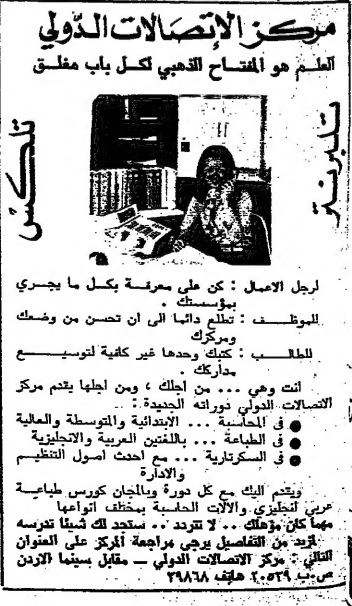 مركز الإتصالات الدولي
العلم هو المفتاح الذهبي لكل باب مغلق
تلكس
تلبرنتر
لرجل الاعمال : كن على معرفة بكل ما يجري
بمؤسستك .
للموظف : تطلع دائما الى ان تحسن من وضعك
ومركزك
للطالب : كتبك وحدها غير كافية لتوسيع
مداركك .
أنت وهي ... من اجلك ، ومن اجلها يقدم مركز
الاتصالات الدولي دوراته الجديدة :
● في المحاسبة ... الابتدائية والمتوسطة والعالية
● في الطباعة ... باللغتين العربية والانجليزية
● في السكرتارية ... مع احدث اصول التنظيم
والادارة
ويتقدم اليك مع كل دورة وبالمجان كورس طباعة
عربي انجليزي والآلات الحاسبة بمختلف انواعها
مهما كان مؤهلك .. لا تتردد .. ستجد لك شيئا تدرسه
لمزيد من التفاصيل يرجى مراجعة المركز على العنوان
التالي : مركز الاتصالات الدولي – مقابل سينما الاردن
ص.ب ٢٠٥٢٩ هاتف ٢٩٨٦٨